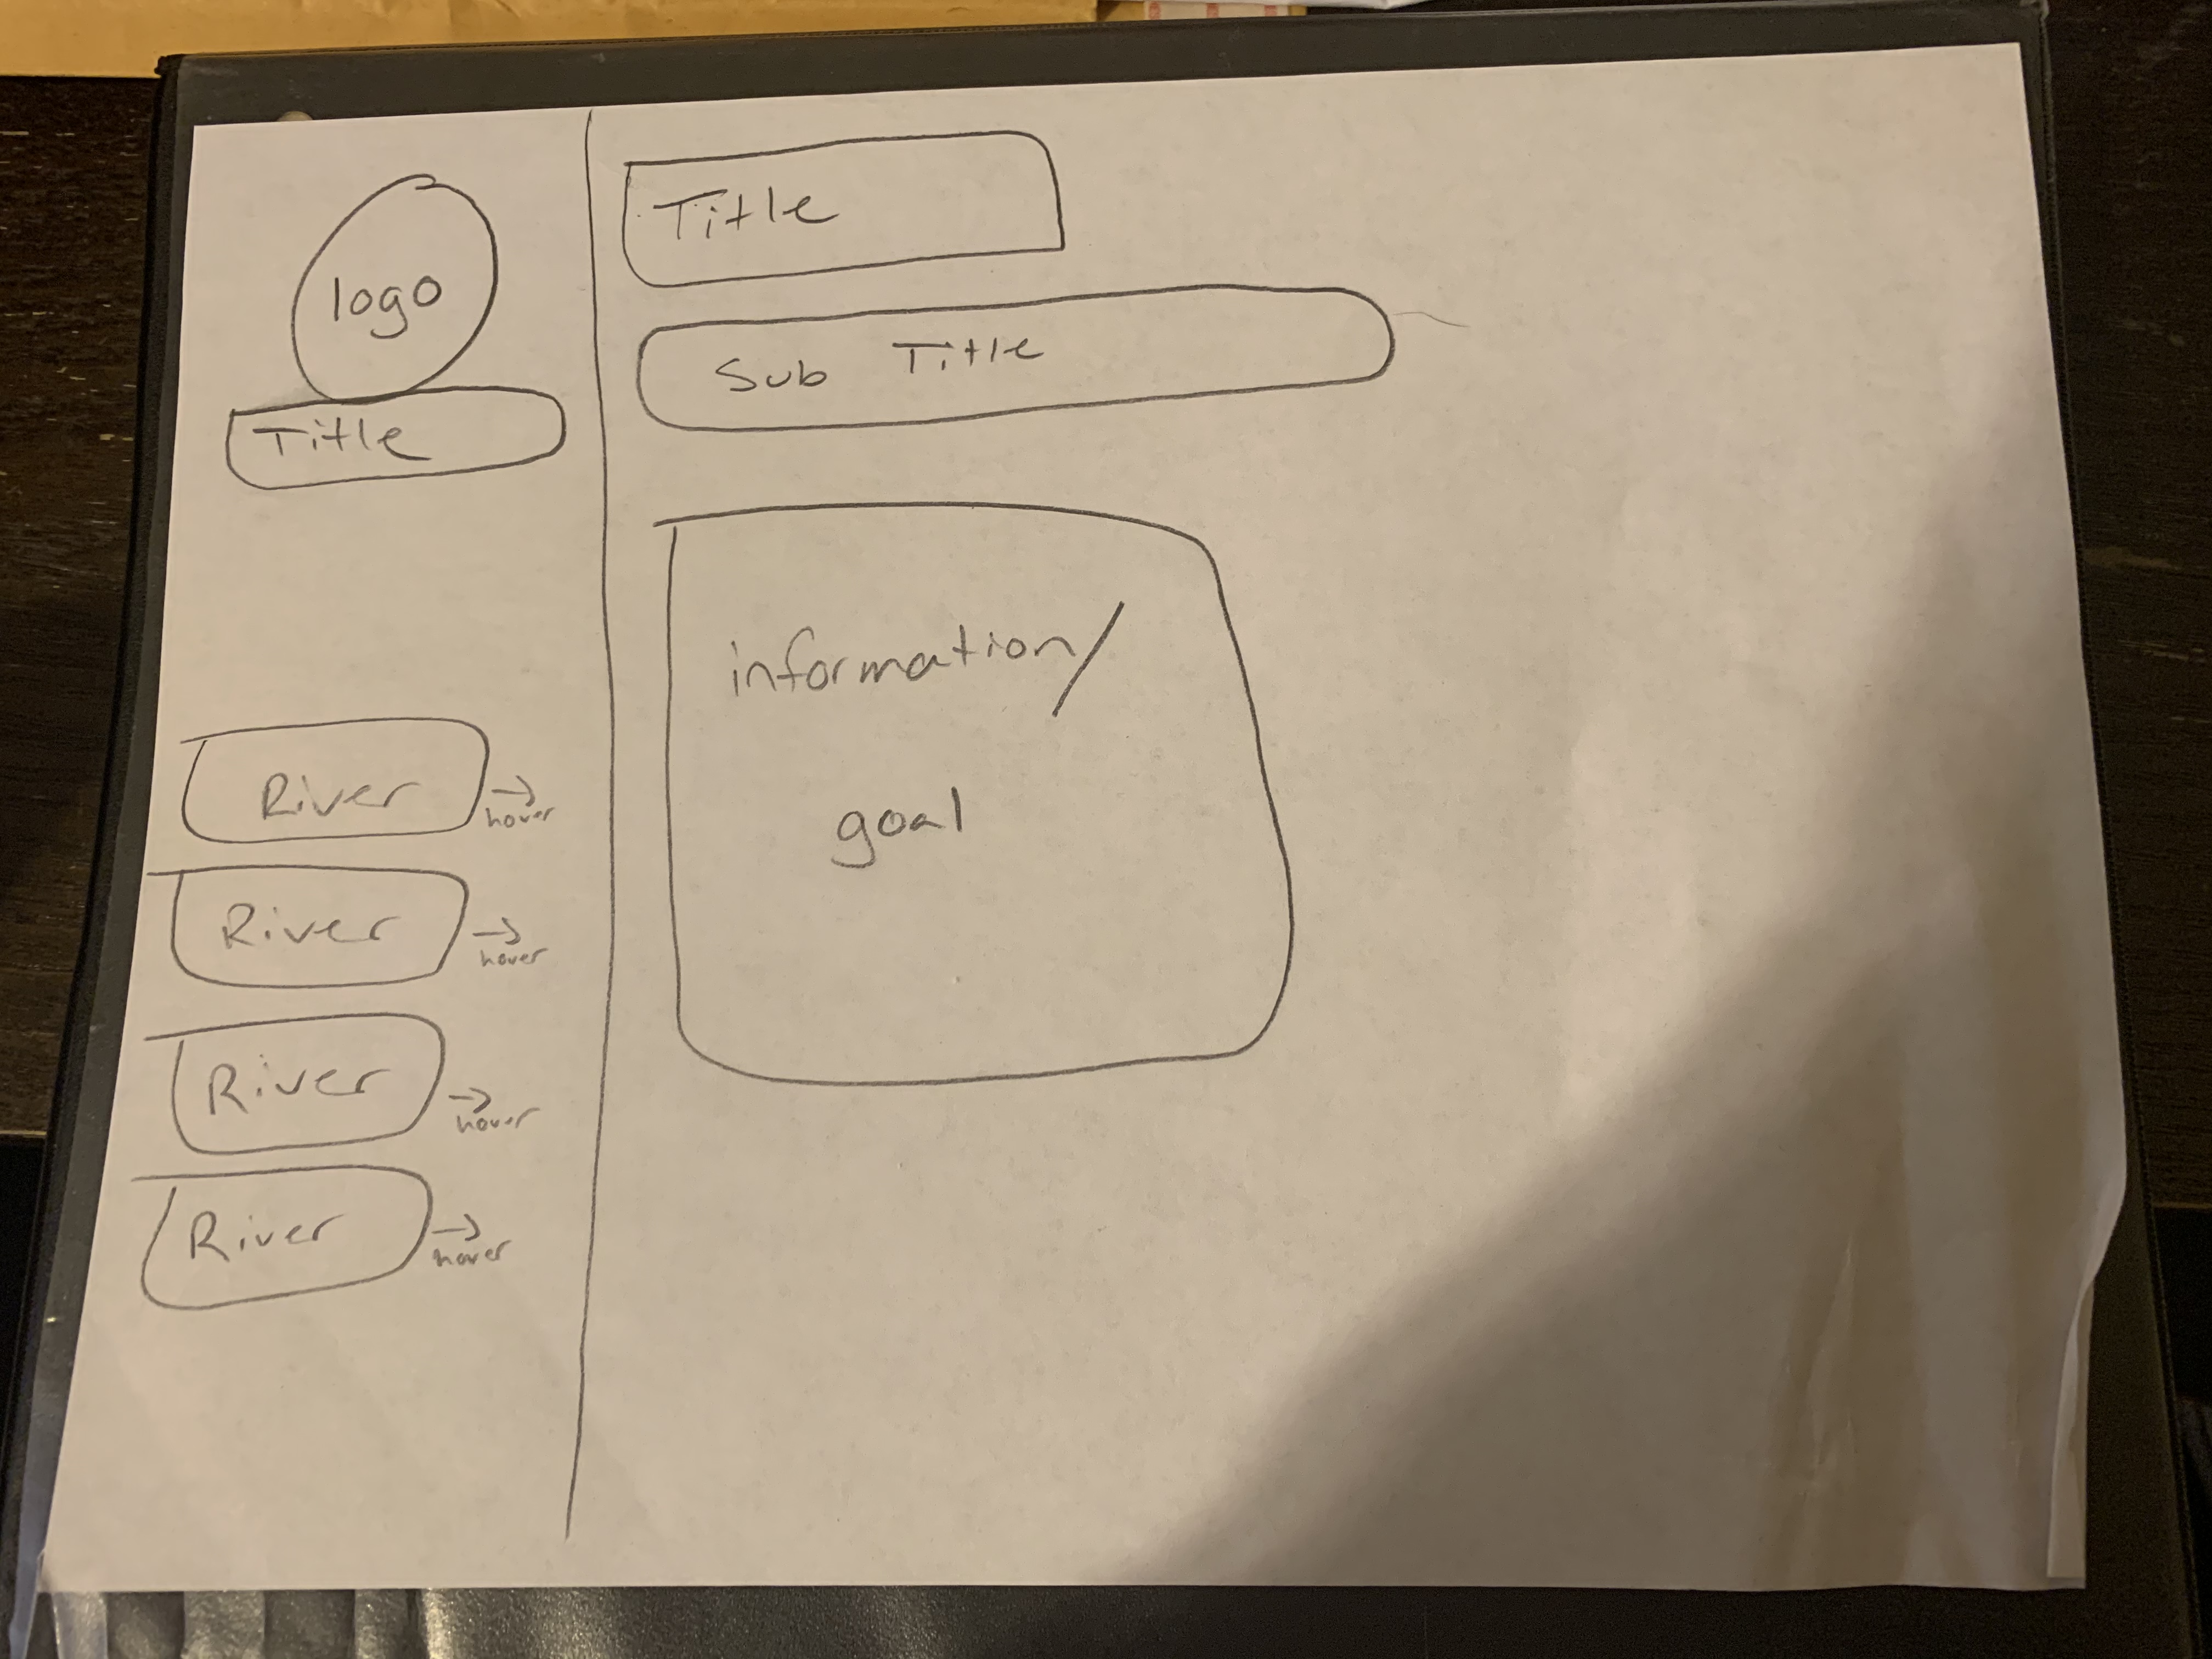 logo
Title
River → hover
River → hover
River → hover
River → hover
Title
Sub Title
information/
goal